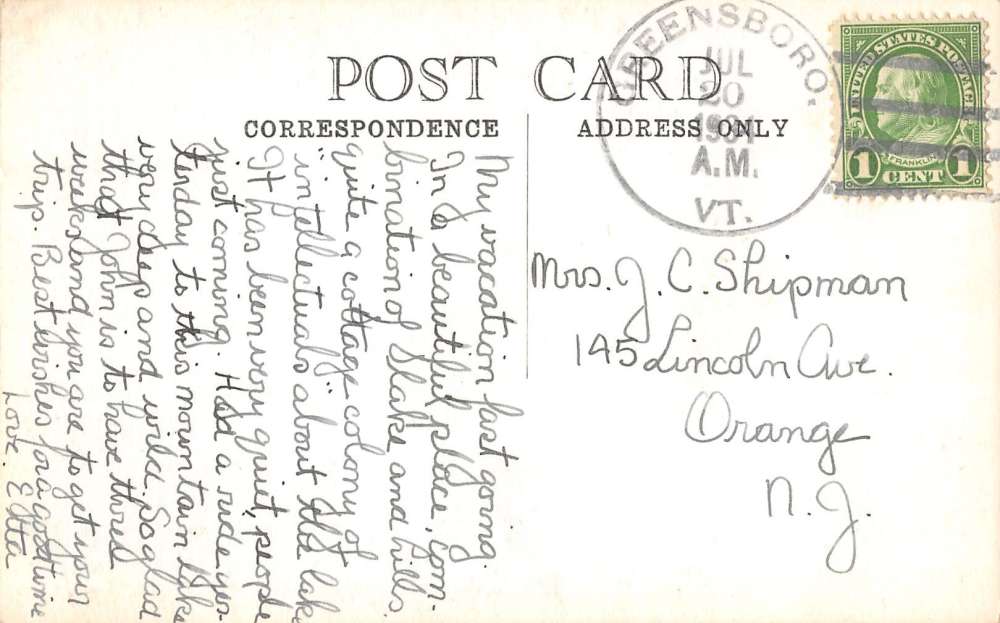 POST CARD
CORRESPONDENCE
ADDRESS ONLY
GREENSBORO.
JUL
20
1931
A.M.
VT.
UNITED STATES POSTAGE
FRANKLIN
1 CENT 1
My vacation fast going.
In a beautiful place, com-
bination of lake and hills.
Quite a cottage colony of
"intellectuals" about the lake
It has been very quiet, people
just coming. Had a ride yes-
terday to this mountain lake
very deep and wild. So glad
that John is to have three
weeks and you are to get your
trip. Best wishes for a good time
Love.
Mrs. J. C. Shipman
145 Lincoln Ave.
Orange
N. J.